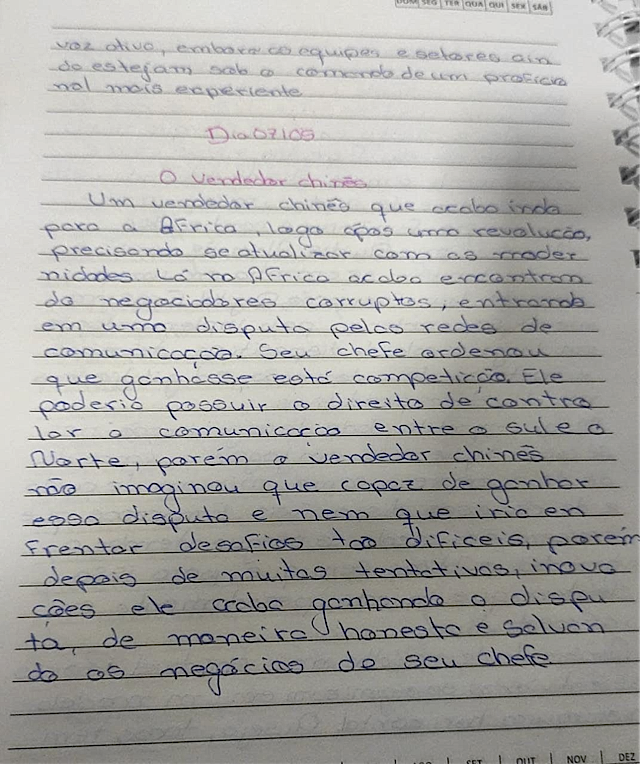 DOM SEG TER QUA QUI SEX SÁB
voz ativa, embora as equipes e setores ain
da estejam sob o comando de um profissio
nal mais experiente
Dia 07/05
O vendedor chinês
Um vendedor chinês que acaba indo
para a África, logo após uma revolução,
precisando se atualizar com as moder
nidades lá na África acaba encontran
do negociadores corruptos, entrando
em uma disputa pelas redes de
comunicação. Seu chefe ordenou
que ganhasse está competição. Ele
poderia possuir o direito de contro
lar a comunicação entre o sul e o
Norte, porém o vendedor chinês
não imaginou que capaz de ganhar
essa disputa e nem que iria en
frentar desafios tão difíceis, porém
depois de muitas tentativas, inova
ções ele acaba ganhando a dispu
ta, de maneira honesta e salvan
do os negócios do seu chefe
SET | OUT | NOV | DEZ